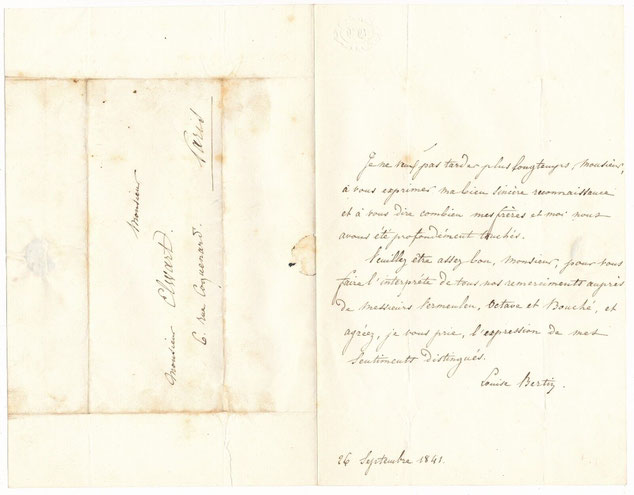 Monsieur
Monsieur Elwart.
6 rue Coquenard.
Paris
Je ne veux pas tarder plus longtemps, Monsieur,
à vous exprimer ma bien sincère reconnaissance
et à vous dire combien mes frères et moi nous
avons été profondément touchés.
Veuillez être assez bon, Monsieur, pour vous
faire l'interprète de tous nos remerciments auprès
de messieurs Vermeulen, Octave et Bouché, et
agréez, je vous prie, l'expression de mes
sentiments distingués.
Louise Bertin.
26 Septembre 1841.